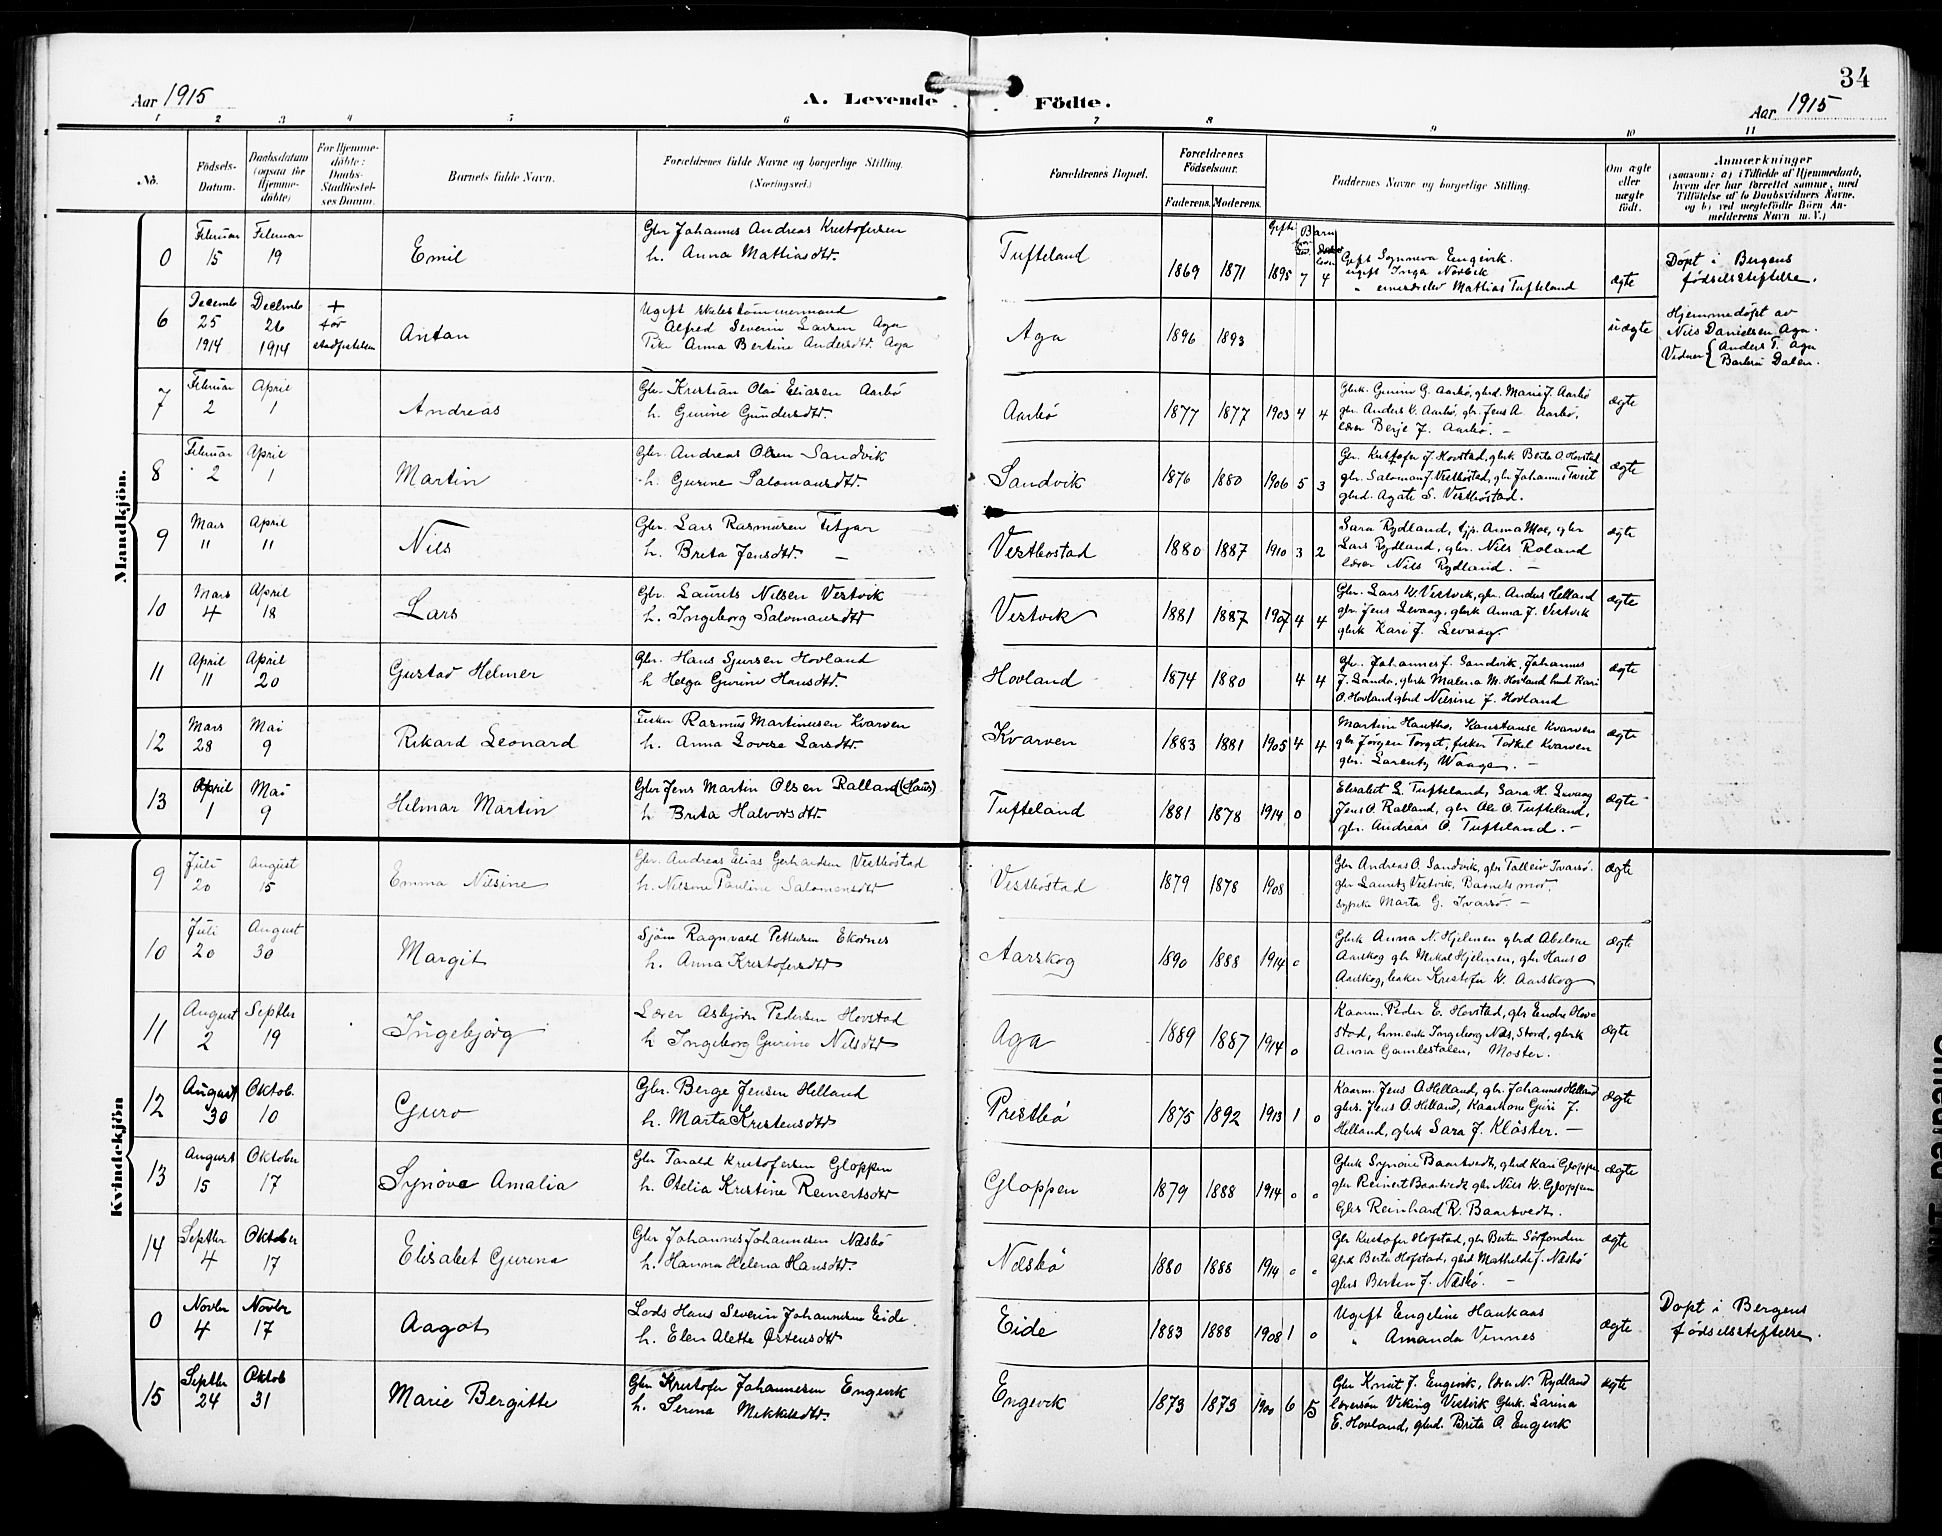 34
Aar 1915
A. Levende Födte.
Aar 1915
1 2 3 4 5 6 7 8 9 10 11
No.
Födsels-Datum.
Daabsdatum (ogsaa for Hjemmedöbte)
For Hjemmedöbte: Daabs-Stadfæstelses Datum.
Barnets fulde Navn.
Forældrenes fulde Navne og borgerlige Stilling. (Næringsvei.)
Forældrenes Bopæl.
Forældrenes Födselsaar.
Faderens. Moderens.
Faddernes Navne og borgerlige Stilling.
Om ægte eller uægte födt.
Anmærkninger
(saasom: a) i Tilfælde af Hjemmedaab, hvem der har forrettet samme, med Tilföielse af to Daabsvidners Navne, og b) ved uægtefödte Börn Anmelderens Navn m. V.)
Gift Barn
Mandkjön.
0 Februar 15 Februar 19 Emil
Gbr Johannes Andreas Kristofersen
h. Anna Mattiasdtr.
Tufteland 1869 1871 1895 7 4
Gift Synneva Engevik
ugift Inga Norbek
" Mathias Tufteland
ægte
Döpt i Bergens
födselsstiftelse.
6 Decembr 25 1914 Decembr 26 1914 + før stadfestelsen Antan
Ugift skibstömmermand
Alfred Severin Larsen Aga
Pike Anna Bertine Andersdtr. Aga
Aga 1896 1893
uægte
Hjemmedöpt av
Nils Danielsen Aga.
Vidner { Anders T. Aga
Barbra Dalen.
7 Februar 2 April 1 Andreas
Gbr. Kristian Olai Eliasen Aarbö
h. Gurine Gundersdtr
Aarbö 1877 1877 1903 4 4
Gbrk. Gurine G. Aarbö, gbrd. Marie J. Aarbö
gbr. Anders K. Aarbö, gbr. Jens A Aarbö,
lærer Berje J. Aarbö. –
ægte
8 Februar 2 April 1 Martin
Gbr. Andreas Olsen Sandvik
h. Gurine Salomansdtr.
Sandvik 1876 1880 1906 5 3
Gbr. Kristofer J Hovstad, gbrk Berta A. Hovstad
gbr. Saloman J. Vestböstad, gbr Johannes Tveit
gbrd. Agate S. Vestböstad.
ægte
9 Mars 11 April 11 Nils
Gbr. Lars Rasmusen Fitjar
h. Brita Jensdtr. –
Vestbostad 1880 1887 1910 3 2
Sara Rydland, tjp. Anna Moe, gbr
Lars Rydland, gbr. Nils Roland
lærer Nils Rydland. –
ægte
10 Mars 4 April 18 Lars
Gbr. Laurits Nilsen Vestvik
h. Ingeborg Salomansdtr
Vestvik 1881 1887 1907 4 4
Gbr. Lars K. Vestvik, gbr. Anders Helland
gbr. Jens Levaag, gbrk Anna J. Vestvik
gbrk Kari J. Levaag.
ægte
11 April 11 April 20 Gustav Helmer
Gbr. Hans Sjursen Hovland
h Helga Gurine Hansdtr.
Hovland 1874 1880 4 4
Gbr. Johannes J. Sandvik, Johannes
J. Landa, gbrk Malena M. Hovland Kari
O. Hovland gbrd Nilsine J. Hovland
ægte
12 Mars 28 Mai 9 Rikard Leonard
Fisker Rasmus Martinusen Kvarven
h. Anna Lovise Larsdtr.
Kvarven 1883 1881 1905 4 4
Martin Kanstanse Kvarven
gbr Jörgen Torget, fisker Torkel Kvarven
gbr. Laurentz Waage. –
ægte
13 April 1 Mai 9 Helmar Martin
Gbr Jens Martin Olsen Ralland (Haus)
h. Brita Halvorsdtr.
Tufteland 1881 1878 1914 0
Elisabet L. Tufteland, Sara H. Levaag
Jens O. Ralland, gbr Ole O. Tufteland,
gbr. Andreas O. Tufteland. –
ægte
Kvindekjön
9 Juli 20 August 15 Emma Nilsine
Gbr. Andreas Elias Gerhardsen Vestböstad
h. Nilsine Pauline Salomonsdtr
Vestböstad 1879 1878 1908
Gbr Andreas O. Sandvik, gbr Talleiv Ivarsö.
gbr Lauritz Vestvik, Barnets mor.
Marta G. Ivarsö. –
ægte
10 Juli 20 August 30 Margit
Sjöm Ragnvald Pettersen Ekornes
h. Anna Kristofersdtr
Aarskog 1890 1888 1914 0
Gbrk Anna N. Hjelmen gbrd Abelone
Aarskog gbr Mikal Hjelmen, gbr Hans O
Aarskog, Kristofer K. Aarskog
ægte
11 August 2 Septbr 19 Ingebjörg
Lærer Asbjörn Pedersen Hovstad
h Ingeborg Gurine Nilsdtr
Aga 1889 1887 1914 0
Kaarm. Peder E. Hovstad, gbr Endre Hov-
stad, Ingeborg Næs, Stord, gbrk
Anna Gamlestölen, Moster.
ægte
12 August 30 Oktob. 10 Guro
Gbr. Berge Jensen Helland
h. Marta Kristensdtr
Prestbö 1875 1892 1913 1 0
Kaarm. Jens O. Helland, gbr. Johannes Helland
gbrs. Jens O. Helland, Kaarkone Guri J.
Helland, gbrk Sara J. Klöster. –
ægte
13 August 15 Oktober 17 Synöve Amalia
Gbr Tarald Kristofersen Gloppen
h. Otelia Kristine Reinertsdtr
Gloppen 1879 1888 1914 0 0
Gbrk Synöve Baartvedt, gbrd Kari Gloppen
gbr Reinert Baartvedt gbr Nils K. Gloppen
Gbs Reinhard R. Baartvedt.
ægte
14 Septbr 4 Oktober 17 Elisabet Gurina
Gbr Johannes Johannesen Næsbö
h. Hanna Helena Hansdtr.
Næsbö 1880 1888 1914 0 0
Gbr Kristofer Hofstad, gbr Bertin Sörfonden
Gbrk Berta Hofstad, gbrd Mathilde J. Næsbö
gbrs Bertin J. Næsbö. –
ægte
0 Novbr 4 Novbr 17 Aagot
Lods Hans Severin Johannesen Eide.
h. Elen Alette Östensdtr
Eide 1883 1888 1908 1 0
Ugift Engeline Haukaas
" Amanda Vinnes
ægte
Döpt i Bergens
födselsstiftelse.
15 Septbr 24 Oktob 31 Marie Bergitte
Gbr Kristofer Johannesen Engevik
h. Serina Mikkelsdtr.
Engevik 1873 1873 1900 6 5
Gbr Knut J. Engevik, lærer N. Rydland
lærersön Viking Vestvik Gbrk. Sarina
E. Hovland, gbrd. Brita O. Engevik
ægte